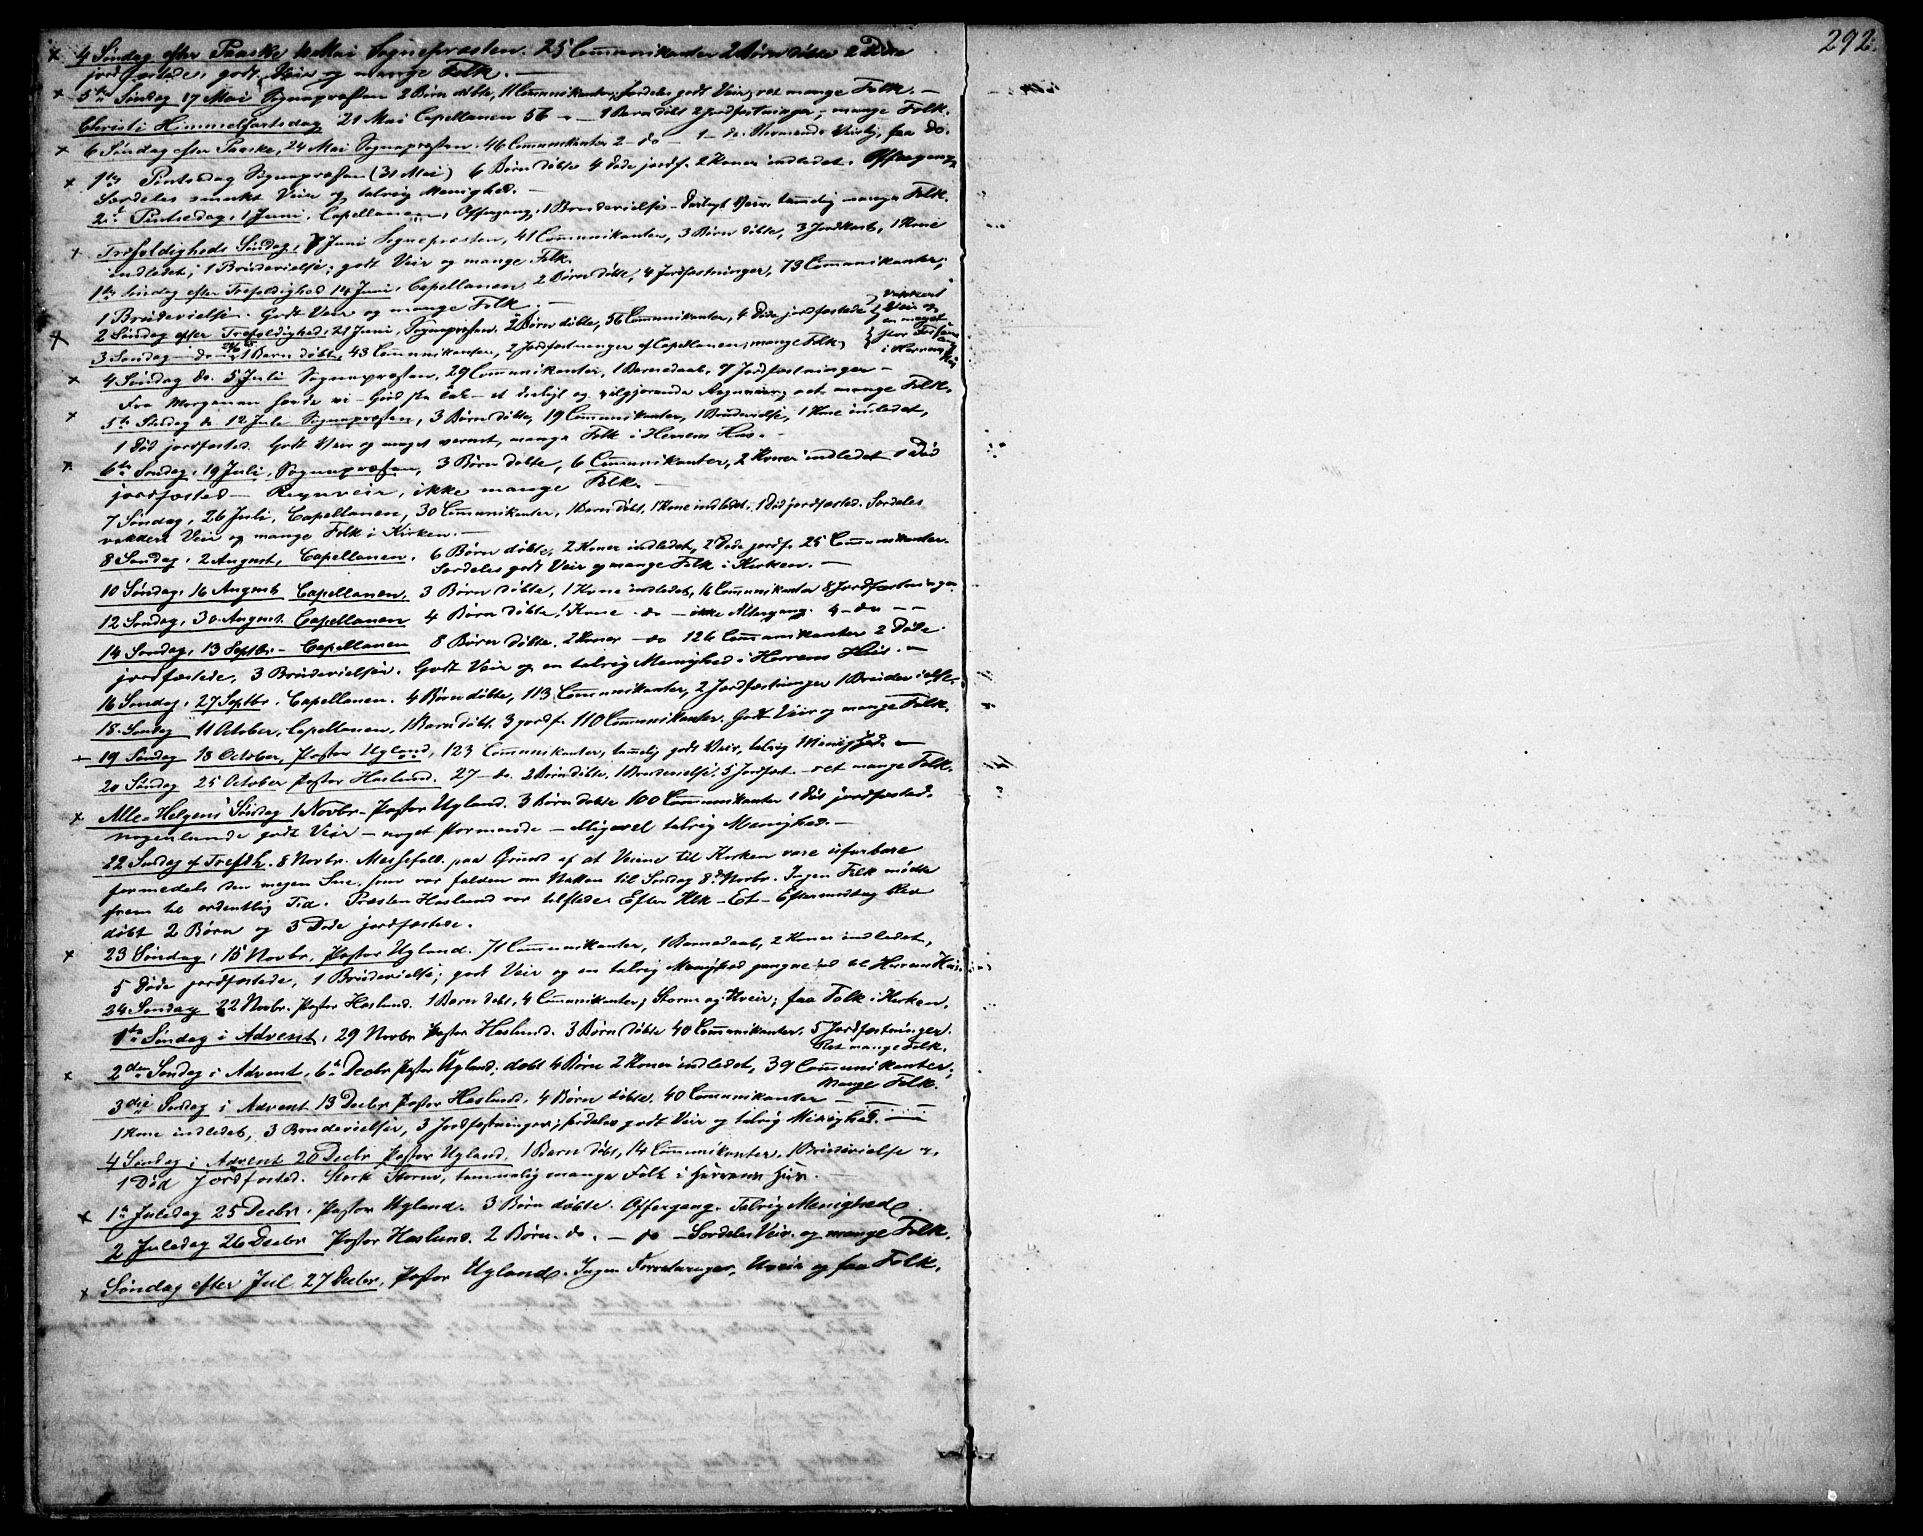 292.
× 4 Søndag efter Paaske 10 Mai Sognepræsten. 25 Communikanter 2 Børn døbte 2 Døde
jordfæstede, godt Veir og mange Folk. —
× 5te Søndag 17 Mai Sognepræsten 2 Børn døbte, 11 Communikanter, særdeles godt Veir, ret mange Folk. —
Christi Himmelfartsdag 21 Mai Capellanen 56 — 1 Barn døbt 2 Jordfæstninger, mange Folk.
× 6 Søndag efter Paaske, 24 Mai Sognepræsten. 46 Communikanter 2 — do — 1 — do. stormende Veirlig, faa do.
× 1ste Pintsedag Sognepræsten (31 Mai) 6 Børn døbte 4 Døde jordf. 2 Koner indledet. Offergang,
særdeles smukt Veir og talrig Menighed. —
2den Pintsedag, 1 Juni, Capellanen, Offergang, 1 Brudevielse — deiligt Veir, temmelig mange Folk.
× Trefoldigheds Søndag, 7 Juni Sognepræsten, 41 Communikanter, 3 Børn døbte, 3 Jordkast, 1 Kone
indledet; 1 Brudevielse; godt Veir og mange Folk.
1ste Søndag efter Trefoldighed 14 Juni, Capellanen, 2 Børn døbte, 4 Jordfæstninger, 73 Communikanter,
1 Brudevielse. Godt Veir og mange Folk. —
× 2 Søndag efter Trefoldighed, 21 Juni, Sognepræsten. 2 Børn døbte, 56 Communikanter, 4 Døde jordfæstede
vakkert
Veir og
en meget
stor
i Herrens
3 Søndag — do 1 Barn døbt, 43 Communikanter, 2 Jordfæstninger af Capellanen; mange Folk,
× 4 Søndag do. 5 Juli Sognepræsten, 29 Communikanter, 1 Barnedaab, 7 Jordfæstninger —
Fra Morgenen havde vi — Gud ske Lov — et deiligt og velgjørende Regnveir, ret mange Folk.
× 5te Søndag do 12 Juli Sognepræsten, 3 Børn døbte, 19 Communikanter, 1 Brudevielse, 1 Kone indledet,
1 Død jordfæsted. Godt Veir og meget varmt, mange Folk i Herrens Hus. —
× 6te Søndag, 19 Juli, Sognepræsten, 3 Børn døbte, 6 Communikanter, 2 Koner indledet 1 Død
jordfæsted — Regnveir, ikke mange Folk. —
7 Søndag, 26 Juli, Capellanen, 30 Communikanter, 1 Barn døbt, 1 Kone indledet, 1 Død jordfæsted. Særdeles
vakkert Veir og mange Folk i Kirken. —
8 Søndag, 2 August, Capellanen. 6 Børn døbte, 2 Koner indledet, 2 Døde jordf. 25 Communikanter.
Særdeles godt Veir og mange Folk i Kirken. —
10 Søndag, 16 August Capellanen, 3 Børn døbte, 1 Kone indledet, 16 Communikanter 8 Jordfæstninger
12 Søndag, 30 August Capellanen 4 Børn døbte, 1 Kone — do — ikke Altergang. 4 — do — —
14 Søndag, 13 Septbr — Capellanen 8 Børn døbte. 2 Koner — do 126 Communikanter 2 Døde
jordfæstede, 3 Brudevielser. Godt Veir og en talrig Menighed i Herrens Hus. —
16 Søndag, 27 Septbr. Capellanen. 4 Børn døbte, 113 Communikanter, 2 Jordfæstninger 1 Brudevielse.
18 Søndag 11 October, Capellanen, 1 Barn døbt. 3 jordf. 110 Communikanter. Godt Veir og mange Folk.
19 Søndag 18 October, Pastor Ugland, 123 Communikanter, temelig godt Veir, talrig Menighed. —
20 Søndag 25 October Pastor Haslund. 27 — do. 2 Børn døbte, 1 Brudevielse, 5 Jordfæst. — ret mange Folk.
× Alle-Helgens Søndag 1 Novbr. Pastor Ugland. 3 Børn døbte 100 Communikanter 1 Død jordfæsted.
nogenlunde godt Veir — noget stormende — alligevel talrig Menighed. —
22 Søndag e. Trefoldh. 8 Novbr. Messefald paa Grund af at Veiene til Kirken vare ufarbare
formedelst den megen Sne, som var falden om Natten til Søndag 8de Novbr. Ingen Folk mødte
frem til ordentlig Tid. Præsten Haslund var tilstede. Efter Klk — Et — Eftermiddag blev
døbt 2 Børn og 3 Døde jordfæstede.
× 23 Søndag, 15 Novbr, Pastor Ugland. 71 Communikanter, 1 Barnedaab, 2 Koner indledet,
5 Døde jordfæstede, 1 Brudevielse; godt Veir og en talrig Menighed gangne ind til Herrens Hus
24 Søndag 22 Novbr. Pastor Haslund. 1 Barn døbt, 4 Communikanter; Storm og Uveir; faa Folk i Kirken.
1ste Søndag i Advent, 29 Novbr Pastor Haslund. 3 Børn døbte 40 Communikanter. 5 Jordfæstninger.
Ret mange Folk.
× 2den Søndag i Advent, 6te Decbr Pastor Ugland; døbt 4 Børn 2 Koner indledet, 39 Communikanter;
Mange Folk.
3die Søndag i Advent 13 Decbr Pastor Haslund. 4 Børn døbte. 40 Communikanter —
1 Kone indledet, 3 Brudevielser, 3 Jordfæstninger; særdeles godt Veir og talrig Menighed. —
4 Søndag i Advent 20 Decbr Pastor Ugland. 1 Barn døbt, 14 Communikanter, 1 Brudevielse &
1 Død Jordfæsted. Stærk Storm, temmelig mange Folk i Herrens Hus.
× 1ste Juledag 25 Decbr. Pastor Ugland. 3 Børn døbte. Offergang. Talrig Menighed.
2 Juledag 26 Decbr Pastor Haslund. 2 Børn — do. — do — Særdeles Veir og mange Folk.
× Søndag efter Jul 27 Decbr, Pastor Ugland. Ingen Forretninger, Uveir og faa Folk.